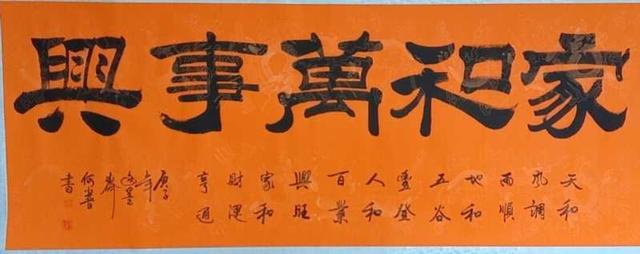 家和萬事興
天和
風調
雨順
地和
五谷
豐登
人和
百業
興旺
家和
財運
亨通
庚子
年
書